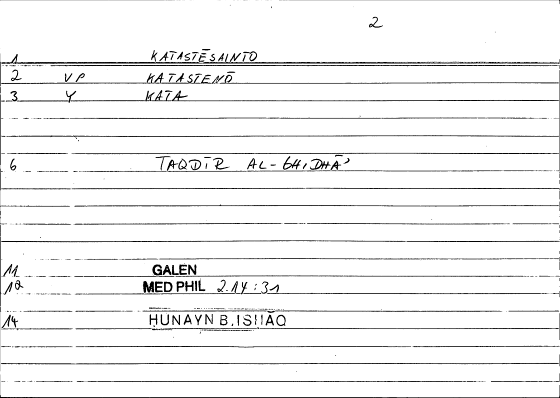 2
1 KATASTĒSAINTO
2 VP KATASTENŌ
3 Y KATA
6 TAQDĪR AL-GHIDHĀʾ
11 GALEN
12 MED PHIL 2.14:31
14 HUNAYN B.ISHAQ